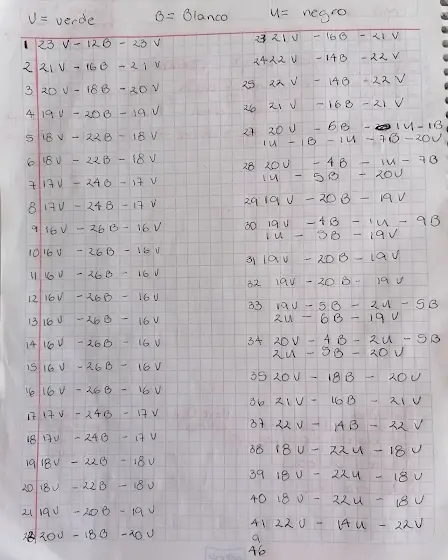 V = verde B = Blanco u = negro
1 23 V - 12B - 23 V
2 21 V - 16B - 21 V
3 20V - 18B - 20V
4 19V - 20B - 19V
5 18V - 22B - 18V
6 18V - 22B - 18V
7 17V - 24B - 17 V
8 17V - 24B - 17 V
9 16V - 26B - 16V
10 16V - 26B - 16V
11 16V - 26B - 16V
12 16V - 26B - 16V
13 16V - 26B - 16V
14 16V - 26B - 16V
15 16V - 26B - 16V
16 16V - 26B - 16V
17 17V - 24B - 17V
18 17V - 24B - 17V
19 18V - 22B - 18V
20 18V - 22B - 18V
21 19V - 20B - 19V
22 20V - 18B - 20V
23 21V - 16B - 21V
24 22V - 14B - 22V
25 22V - 14B - 22V
26 21V - 16B - 21V
27 20V - 6B - 1u - 1B
1u - 1B - 1u - 7B - 20V
28 20V - 4B - 1u - 7B
1u - 5B - 20V
29 19V - 20B - 19V
30 19V - 4B - 1u - 9B
1u - 5B - 19V
31 19V - 20B - 19V
32 19V - 20B - 19V
33 19V - 5B - 2u - 5B
2u - 6B - 19V
34 20V - 4B - 2u - 5B
2u - 5B - 20V
35 20V - 18B - 20V
36 21V - 16B - 21V
37 22V - 14B - 22V
38 18V - 22u - 18V
39 18V - 22u - 18V
40 18V - 22u - 18V
41 22V - 14u - 22V
a
46